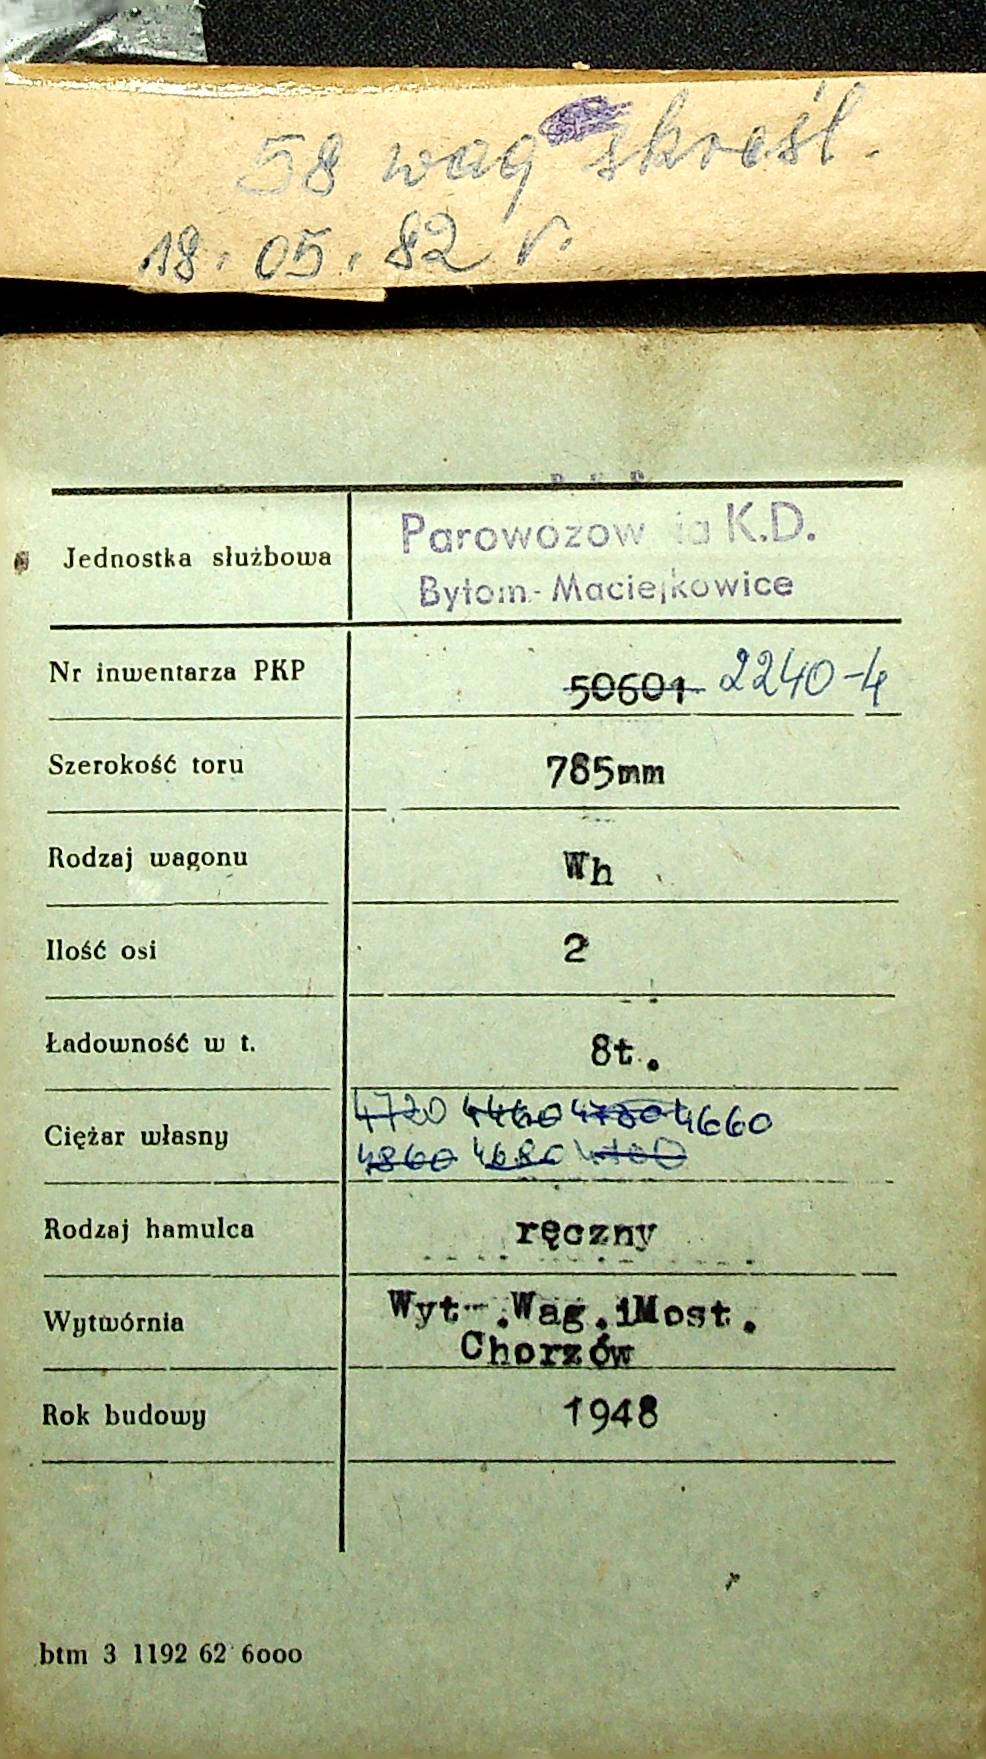 58 wag skreśl.
18.05.82 r.
P. K. P.
Jednostka służbowa Parowozow ia K.D.
Bytom-Maciejkowice
Nr inwentarza PKP 50601 2240-4
Szerokość toru 785mm
Rodzaj wagonu Wh
Ilość osi 2
Ładowność w t. 8t.
Ciężar własny 4720 4440 4780 4660
4860 4680
Rodzaj hamulca ręczny
Wytwórnia Wyt-.Wag.iMost.
Chorzów
Rok budowy 1948
btm 3 1192 62 6000